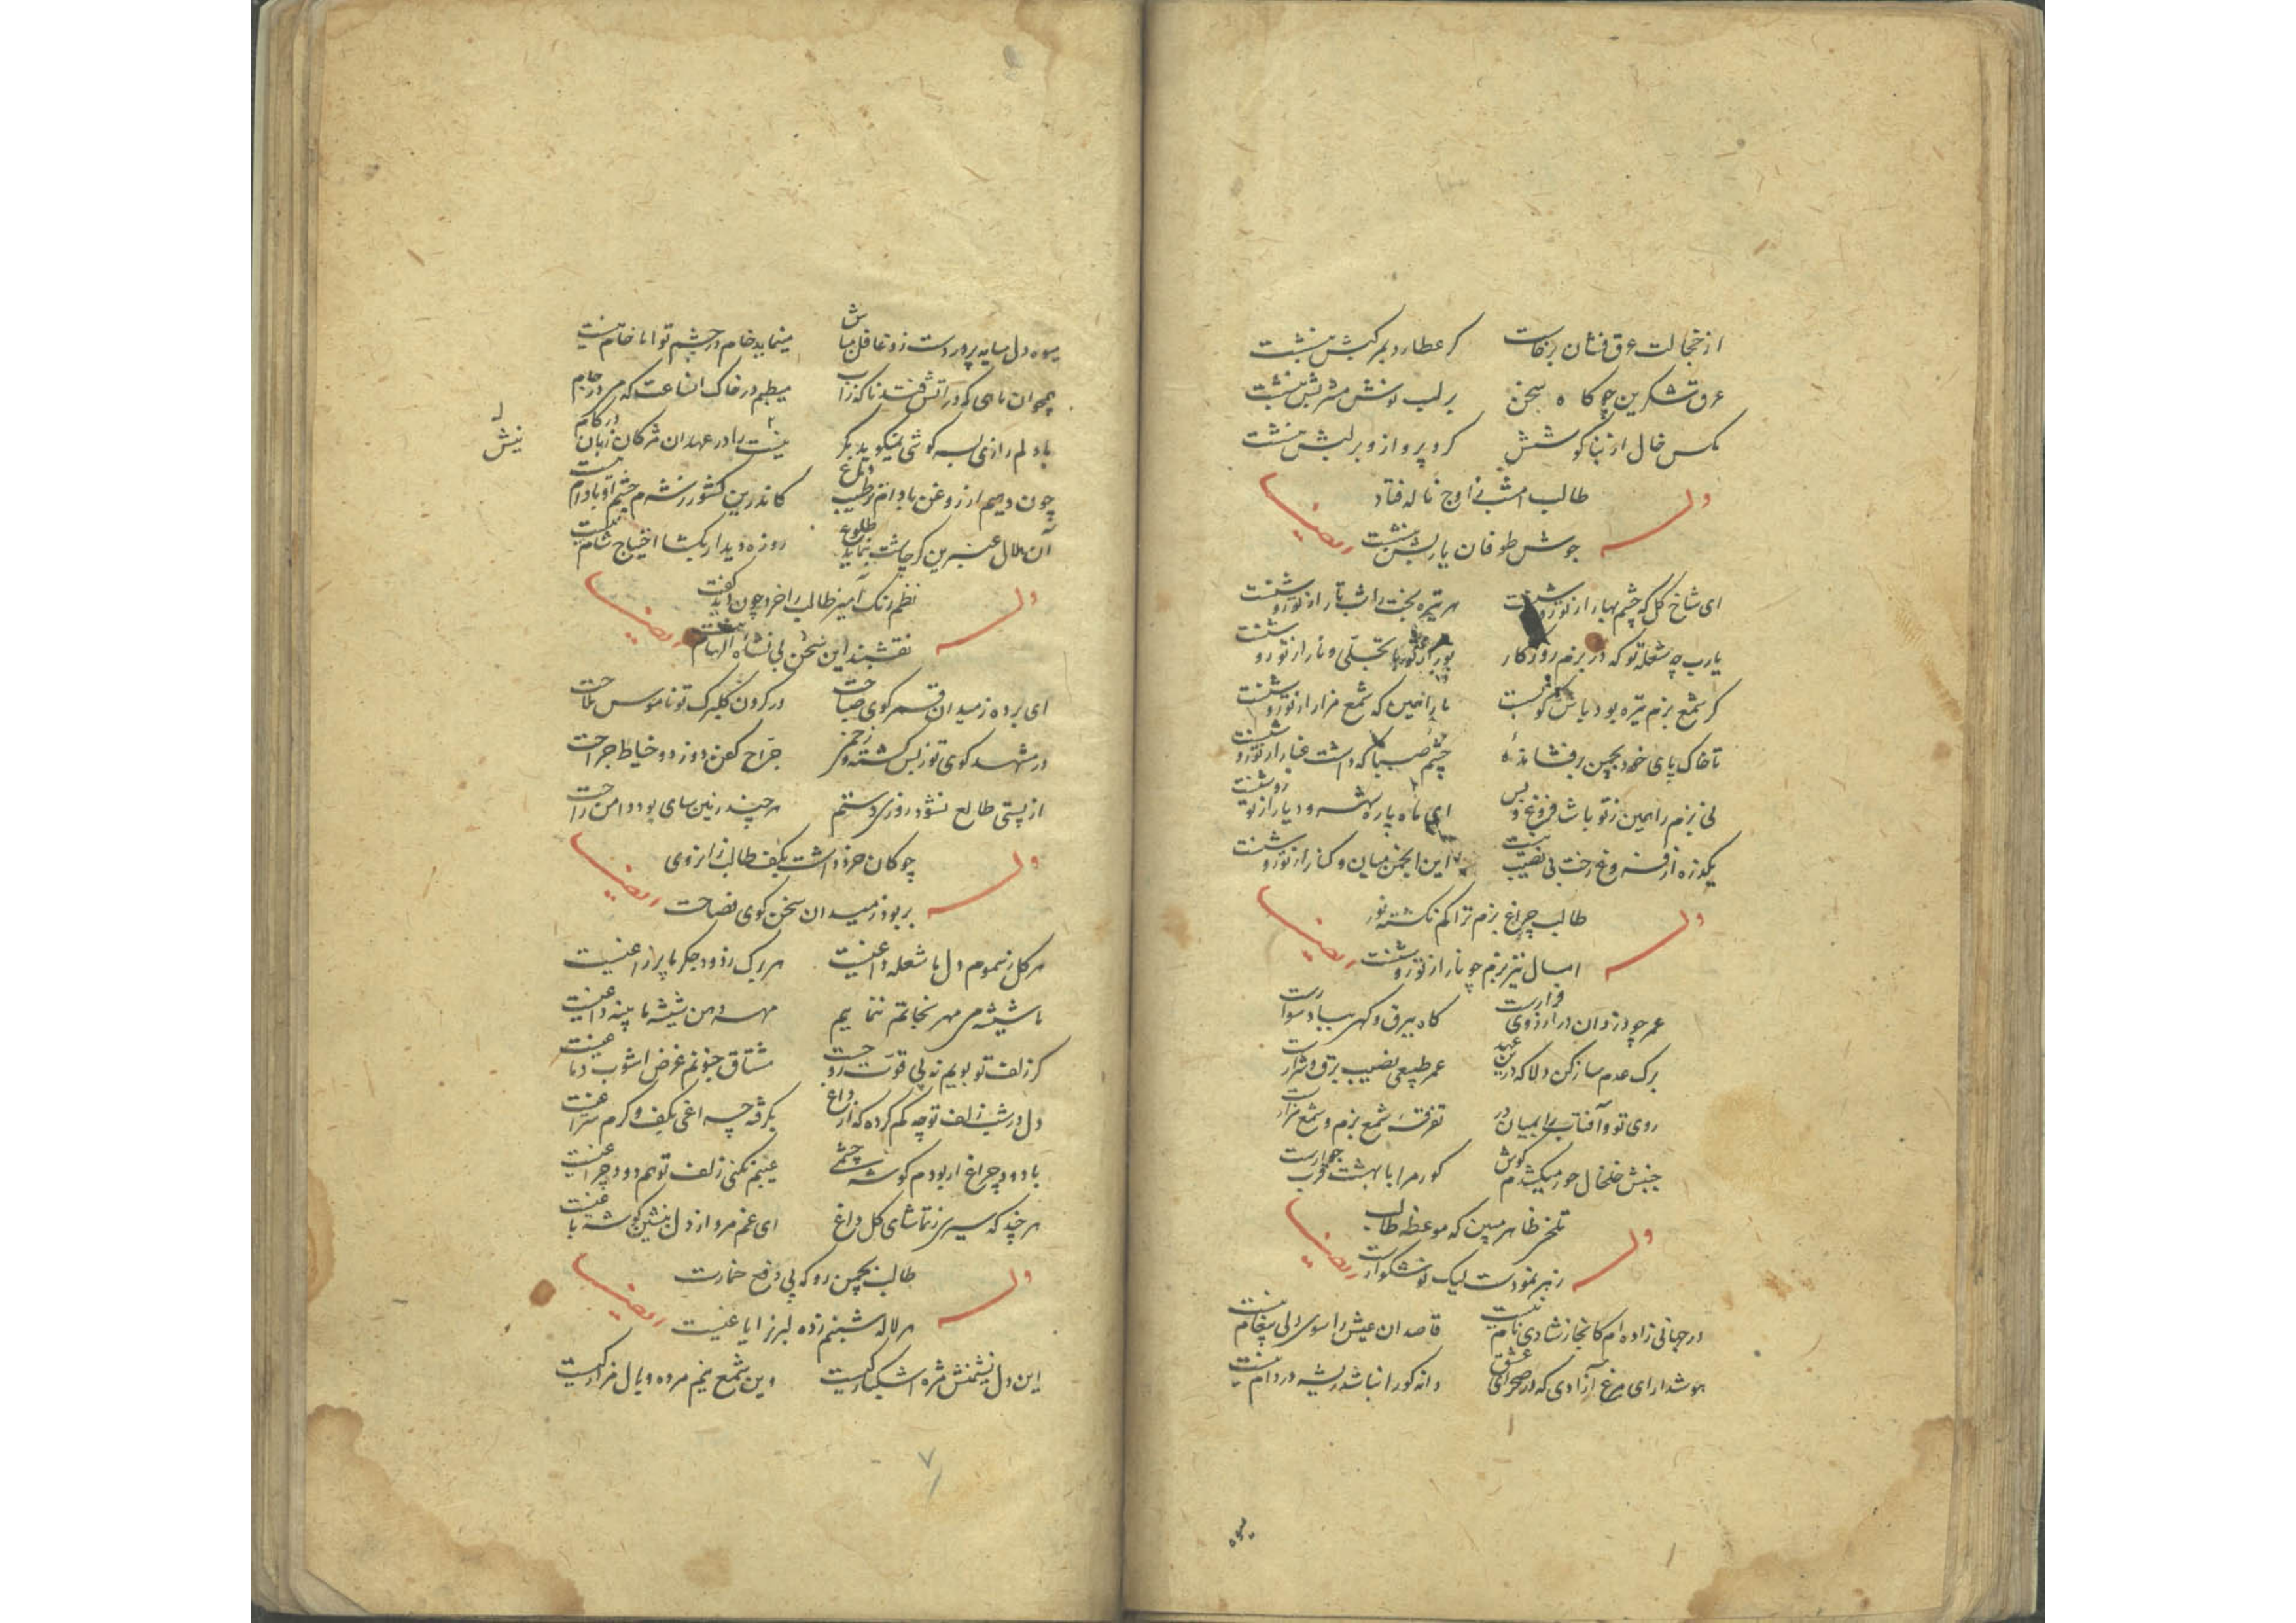 از خجالت عرق فشان برخاست کر عطارد بمرکبش بنشست
عرق شکرین چو کاه سخن بر لب نوش مشربش بنشست
مکس خال از بناکوشش کرد پرواز و بر لبش بنشست
طالب امشب ز اوج ناله فتاد
وله ایضا
جوش طوفان یاربش بنشست
ای شاخ کل که چشم بهار از تو روشنست هر تیره بخت را شب تار از تو روشنست
یارب چه شعله تو که در بزم روزکار تجلی و نار از تو روشنست
کر شمع بزم تیره بود باش کو مست ما را همین که شمع مزار از تو روشنست
تا خاک پای خود بچمن برفشانده چشم صبا که داشت غبار از تو روشنست
نی بزم را همین ز تو باشد فروغ و بس ای ماه پاره شهر و دیار از تو روشنست
یکذره از فروغ رخت بی نصیب نیست این انجمن میان و کنار از تو روشنست
طالب چراغ بزم ترا کم نکشته نور
وله ایضا
امسال نیز بزم چو پار از تو روشنست
عمر چو دزدان در آرزوی فرارست کاه ببرق و کهی بباد سوارست
برک عدم ساز کن دلا که درین عهد عمر طبیعی نصیب برق و شرارست
روی تو و آفتاب را بمیان در تفرقه شمع بزم و شمع مزارست
جنبش خلخال حور میکشدم کوش کور مرا با بهشت قرب جوارست
تلخی ظاهر مبین که موعظه طالب
وله ایضا
زهر نمودست لیک نوشکوارست
در جهانی زاده ام کانجا ز شادی نام نیست قاصدان عیش را سوی دلی پیغام نیست
هوشدار ای مرغ آزادی که در صحرای عشق دانه کور انباشد ریشه در دام نیست
میوه دل سایه پروردست زو غافل مباش مینماید خام در چشم تو اما خام نیست
همچو آن ماهی که در آتش فتد ناکه ز آب میطپم در خاک آنساعت که می در جام نیست
با دلم رازی بسرکوشی نمیکوید مکر نیست را در عهد آن مژکان زبان در کام
نیش
چون دهم از روغن بادام ترطیب دماغ کاندرین کشور ز شرم چشم او بادام نیست
آن هلال عنبرین کر چاشت بنماید طلوع روزه دیدار بکشا احتیاج شام نیست
نظم رنک آمیز طالب را خرد چون دید کفت
وله ایضا
نقشبند این سخن بی نشاه الهام نیست
ای برده ز میدان قسم کوی صباحت در کردن کلبرک تو ناموس ملاحت
در مشهد کوی تو ز بس کشته و زخمی جراح کفن دوزد و خیاط جراحت
از پستی طالع نشود روزی دستم هر چند زمین سای بود دامن راحت
چوکان خرد داشت بکف طالب از آنروی
وله ایضا
بربود ز میدان سخن کوی فصاحت
هر کل ز سموم دل ما شعله داغیست هر رک ز دود جکر ما پر زاغیست
ما شیشه می مهر نجاتم ننماییم مهر دهن شیشه ما پنبه داغیست
کر زلف تو بویم نه پی قوت روحست مشتاق جنونم غرض آشوب دماغیست
دل در شب زلف تو چه کم کرده که از داغ بکرفته چراغی بکف و کرم سراغیست
با دود چراغ ار بودم کوشه چشمی عیبم نکنی زلف تو هم دود چراغیست
هر چند که سیری ز تماشای کل داغ ای غم مرو از دل بنشین کوشه باغیست
طالب بچمن رو که پی دفع خمارت
وله ایضا
هر لاله شبنم زده لبریز ایاغیست
این دل نشیمنش مژه اشکبار کیست وین شمع نیم مرده وبال مزار کیست
۷